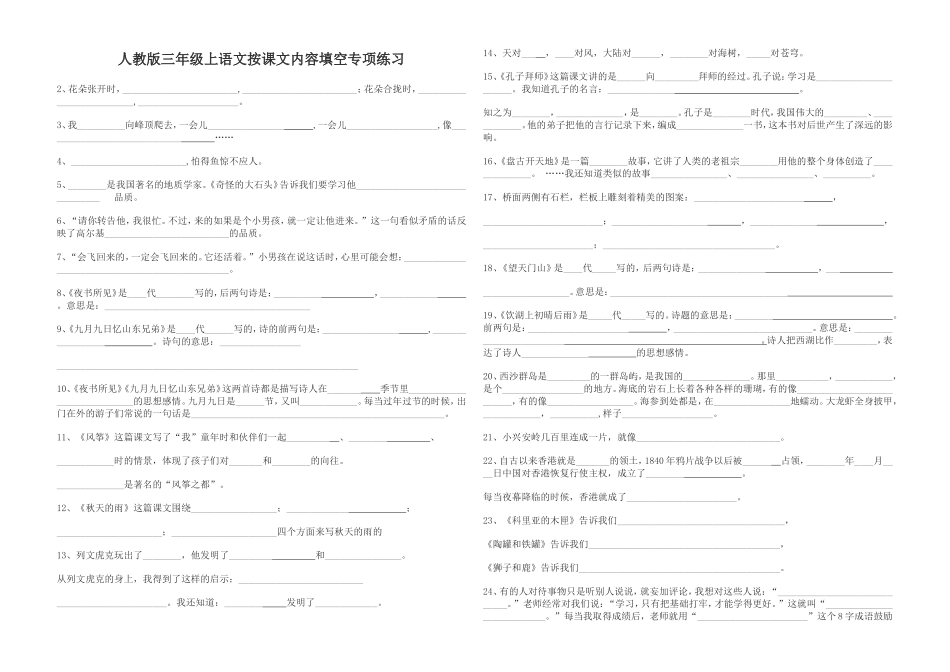 人教版三年级上语文按课文内容填空专项练习
2、花朵张开时，________________________，________________________；花朵合拢时，__________
________________，_____________________。
3、我__________向峰顶爬去，一会儿______________________，一会儿___________________，像___
________________________________……
4、________________________，怕得鱼惊不应人。
5、________是我国著名的地质学家。《奇怪的大石头》告诉我们要学习他_______________________
_________ 品质。
6、“请你转告他，我很忙。不过，来的如果是个小男孩，就一定让他进来。”这一句看似矛盾的话反
映了高尔基__________________________的品质。
7、“会飞回来的，一定会飞回来的。它还活着。”小男孩在说这话时，心里可能会想：_____________
____________________________________。
8、《夜书所见》是____代________写的，后两句诗是：_____________________，__________________
。意思是：___________________________________________
9、《九月九日忆山东兄弟》是____代______写的，诗的前两句是：______________________，_______
____________________。诗句的意思：_________________
_______________________________________________________________
10、《夜书所见》《九月九日忆山东兄弟》这两首诗都是描写诗人在___________季节里____________
________________的思想感情。九月九日是______节，又叫____________。每当过年过节的时候，出
门在外的游子们常说的一句话是___________________________________________________。
11、《风筝》这篇课文写了“我”童年时和伙伴们一起___________、_________________、
____________时的情景，体现了孩子们对_______和________的向往。
______________是著名的“风筝之都”。
12、《秋天的雨》这篇课文围绕__________________；________________________；
______________________；______________________四个方面来写秋天的雨的
13、列文虎克玩出了________，他发明了__________________和________________。
从列文虎克的身上，我得到了这样的启示：__________________________
_______________________。我还知道：_____________发明了_____________。
14、天对_____，____对风，大陆对______，________对海树，_____对苍穹。
15、《孔子拜师》这篇课文讲的是______向_________拜师的经过。孔子说：学习是________________
______。我知道孔子的名言：________________________________________，
知之为________，______________，是________。孔子是________时代，我国伟大的_________、____
________。他的弟子把他的言行记录下来，编成______________一书，这本书对后世产生了深远的影
响。
16、《盘古开天地》是一篇________故事，它讲了人类的老祖宗________用他的整个身体创造了____
__________。 ……我还知道类似的故事________________、_______________、__________。
17、桥面两侧有石栏，栏板上雕刻着精美的图案：_____________________________，
_________________________；___________________________，____________________________，
_______________________；____________________________________。
18、《望天门山》是____代_____写的，后两句诗是：_________________________，______________
__________________。意思是：___________________________________________________________
19、《饮湖上初晴后雨》是_____代_____写的。诗题的意思是：________________________________。
前两句是：____________________________，_____________________________。意思是：________
__________________________________________________________，诗人把西湖比作_________，表
达了诗人________________________的思想感情。
20、西沙群岛是_________的一群岛屿，是我国的______________。那里___________，____________，
是个_________________的地方。海底的岩石上长着各种各样的珊瑚，有的像____________________
______，有的像__________________。海参到处都是，在________________地蠕动。大龙虾全身披甲，
____________，__________,样子___________________。
21、小兴安岭几百里连成一片，就像______________________________。
22、自古以来香港就是_______的领土，1840 年鸦片战争以后被________占领，________年____月___
__日中国对香港恢复行使主权，成立了______________。
每当夜幕降临的时候，香港就成了_______________________。
23、《科里亚的木匣》告诉我们___________________________________，
《陶罐和铁罐》告诉我们________________________________________，
《狮子和鹿》告诉我们__________________________________________。
24、有的人对待事物只是听别人说说，就妄加评论，我想对这些人说：“________________________
_____。”老师经常对我们说：“学习，只有把基础打牢，才能学得更好。”这就叫“______________
_____________。”每当我取得成绩后，老师就用“_______________________”这个 8 字成语鼓励